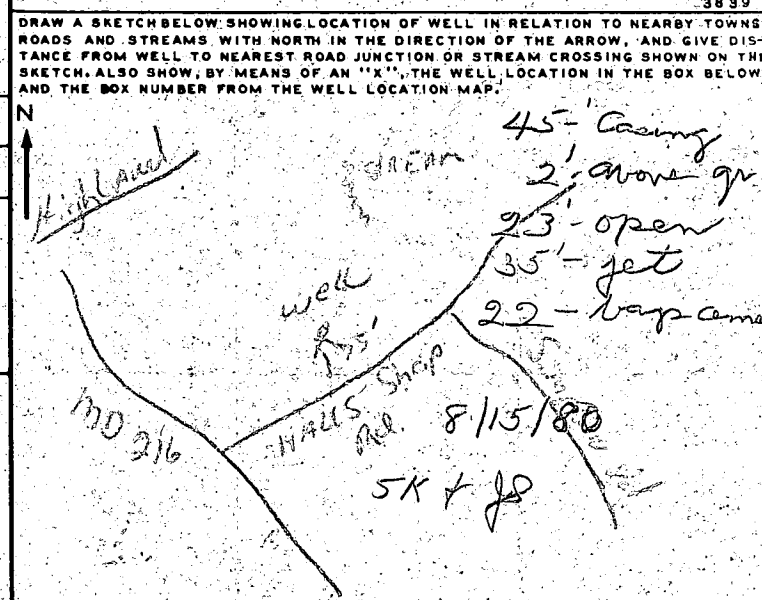 3839
DRAW A SKETCH BELOW SHOWING LOCATION OF WELL IN RELATION TO NEARBY TOWNS
ROADS AND STREAMS WITH NORTH IN THE DIRECTION OF THE ARROW, AND GIVE DIS-
TANCE FROM WELL TO NEAREST ROAD JUNCTION OR STREAM CROSSING SHOWN ON THE
SKETCH. ALSO SHOW, BY MEANS OF AN "X", THE WELL LOCATION IN THE BOX BELOW
AND THE BOX NUMBER FROM THE WELL LOCATION MAP.
N
45-' Casing
Highland
STREAM
2'- above gr
23'- open
35'- jet
well
22 - bags ceme
75'
HALLS Shop
Rd.
MD 216
8/15/80